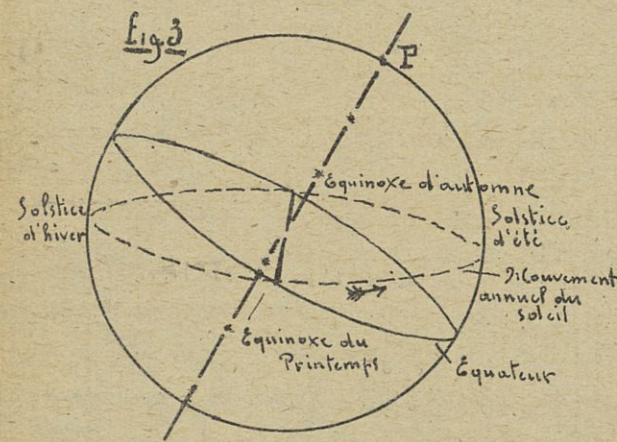 Fig 3
P
Equinoxe d'automne
Solstice
d'hiver
Solstice
d'été
Mouvement
annuel du
soleil
Equinoxe du
Printemps
Équateur